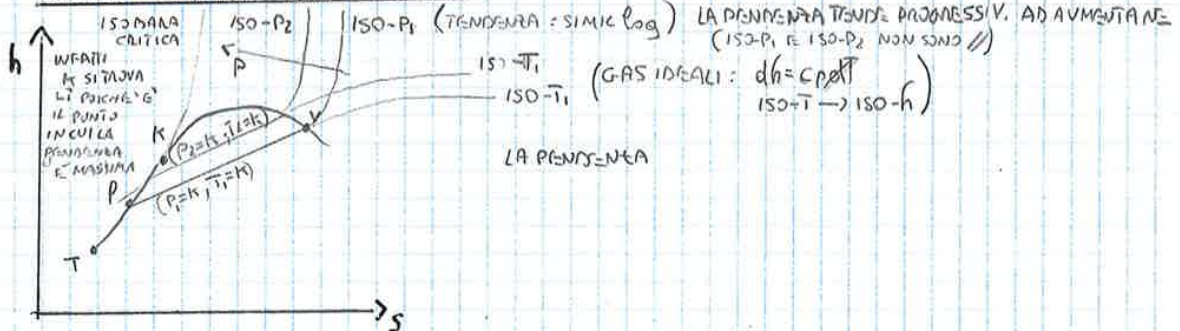 ISOBARA
CRITICA
ISO-P₂
ISO-P₁ (TENDENZA: SIMIL log)
LA PENDENZA TENDE PROGRESSIV. AD AUMENTARE
(ISO-P₁ E ISO-P₂ NON SONO //)
h
INFATTI
K SI TROVA
LÌ POICHÉ È
IL PUNTO
IN CUI LA
PENDENZA
E' MASSIMA
P
ISO-T₁
ISO-T₁
(GAS IDEALI: dh=cpdT
ISO-T → ISO-h)
K
V
(P₂=K, T₂=K)
LA PENDENZA
P
(P₁=K, T₁=K)
T
S